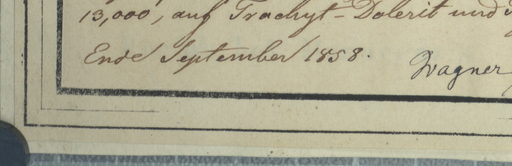 13,000, auf Trachyt-Dolerit und
Ende September 1858.
Wagner